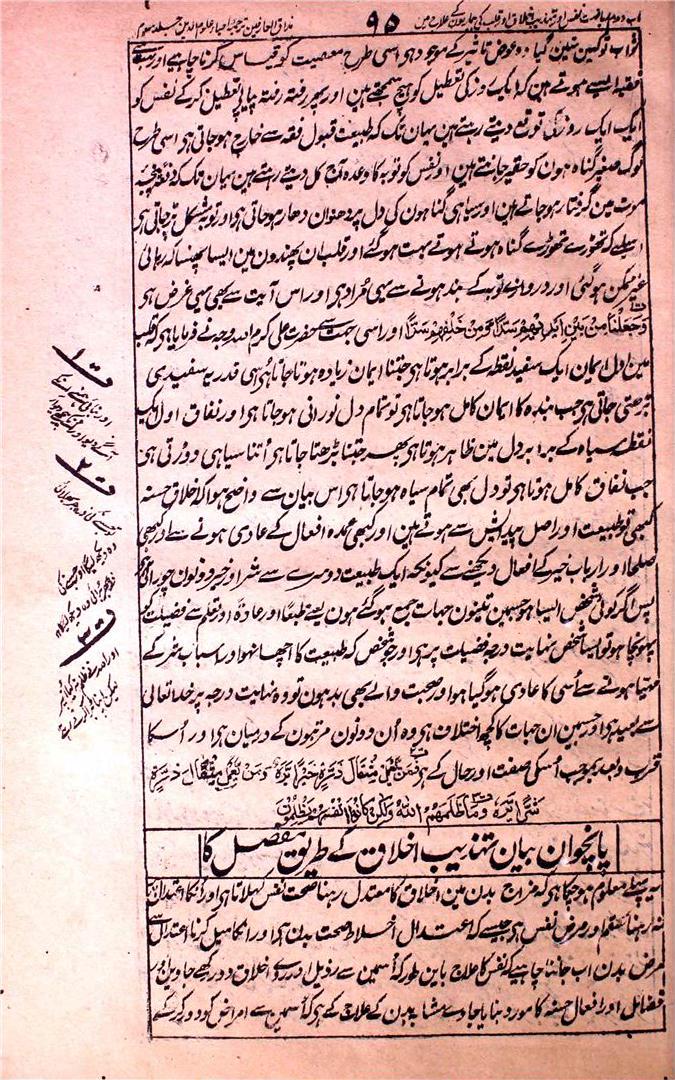 باب دوم ریاضت نفس اور تہذیب اخلاق اور قلب کی بیماریوں کے علاج میں
۹۵
مذاق العارفین ترجمہ احیاء علوم الدین جلد سوم
ثواب تو کہین نہین گیا وہ عوض تاثیر کے موجود ہی اسی طرح معصیت کو قیاس کرنا چاہیے اور بہت سے
فقیہ ایسے ہوتے ہین کہ ایک روز کی تعطیل کو ہیچ سمجھتے ہین اور پھر رفتہ رفتہ پیاپے تعطیل کرکے نفس کو
ایک ایک روز کی توقع دیتے رہتے ہین یہان تک کہ طبیعت قبول فقہ سے خارج ہو جاتی ہی اسی طرح
لوگ صغیر گناہ ہون کو حقیر جانتے ہین اور نفس کو توبہ کا وعدہ آج کل دیتے رہتے ہین یہان تک کہ دفعۃً پنجہ
موت مین گرفتار ہو جاتے ہین اور سیاہی گنا ہون کی دل پر دھنوان دھار ہو جاتی ہی اور توبہ مشکل پڑ جاتی ہی
اسلیے کہ تھوڑے تھوڑے گناہ ہوتے ہوتے بہت ہو گئے اور قلب ان پھندون مین ایسا پھنسا کہ رہائی
غیر ممکن ہو گئی اور دروازہ توبہ کے بند ہونے سے یہی مراد ہی اور اس آیت سے بھی یہی غرض ہی
وَجَعَلْنَا مِنْ بَيْنِ اَيْدِيْهِمْ سَدًّا وَّمِنْ خَلْفِهِمْ سَدًّا اور اسی جہت سے حضرت علی کرم اللہ وجہہ نے فرمایا ہی کہ قلب
مین اول ایمان ایک سفید نقطہ کے برابر ہوتا ہی جتنا ایمان زیادہ ہوتا جاتا ہی اُسی قدر یہ سفیدی
بڑھتی جاتی ہی جب بندہ کا ایمان کامل ہو جاتا ہی تو تمام دل نورانی ہو جاتا ہی اور نفاق اول ایک
نقطہ سیاہ کے برابر دل مین ظاہر ہوتا ہی پھر جتنا بڑھتا جاتا ہی اُتنا سیاہی دوڑتی ہی
جب نفاق کامل ہوتا ہی تو دل بھی تمام سیاہ ہو جاتا ہی اس بیان سے واضح ہوا کہ اخلاق حسنہ
کبھی تو طبیعت اور اصل پیدایش سے ہوتے ہین اور کبھی عمدہ افعال کے عادی ہونے سے اور کبھی
صلحا اور ارباب خیر کے افعال دیکھنے سے کیونکہ ایک طبیعت دوسرے سے شر اور خیر دونون چوراتی ہی
پس اگر کوئی شخص ایسا ہو جسمین تینون جہات جمع ہو گئے ہون یعنے طبعًا اور عادۃً اور تعلم سے فضیلت کو
پہونچا ہو تو ایسا شخص نہایت درجہ فضیلت پر ہی اور جو شخص کہ طبیعت کا اچھا نہو اور اسباب شر کے
مہیا ہونے سے اُسی کا عادی ہو گیا ہو اور صحبت والے بھی بد ہون تو وہ نہایت درجہ پر خدا تعالی
سے بعید ہی اور جسمین ان جہات کا کچھ اختلاف ہی وہ اُن دونون مرتبون کے درمیان ہی اور اُسکا
قرب و بعد بموجب اُسکی صفت اور حال کے ہی فَمَنْ يَّعْمَلْ مِثْقَالَ ذَرَّةٍ خَيْرًا يَّرَهُ وَمَنْ يَّعْمَلْ مِثْقَالَ ذَرَّةٍ
شَرًّا يَّرَهُ وَمَا ظَلَمَهُمُ اللّٰهُ وَلٰكِنْ كَانُوْا اَنْفُسَهُمْ يَظْلِمُوْنَ
پانچوان بیان تہذیب اخلاق کے طریق مفصل کا
یہ پہلے معلوم ہو چکا ہی کہ مزاج بدن مین اخلاق کا معتدل رہنا صحت نفس کہلاتا ہی اور انکا اعتدال پر
نہ رہنا سقم اور مرض نفس ہی جیسے کہ اعتدال اخلاط صحت بدن ہی اور انکا میل کرنا اعتدال سے
مرض بدن اب جاننا چاہیے کہ نفس کا علاج باین طور کہ اُسمین سے رذیل اور ردی اخلاق دور کیے جاوین اور
فضائل اور افعال حسنہ کا مورد بنایا جاوے مشابہ بدن کے علاج کے ہی کہ اُسمین سے امراض کو دور کرکے
ف۱
اور بنائی ہمنے انکے
ف۲
ف۳